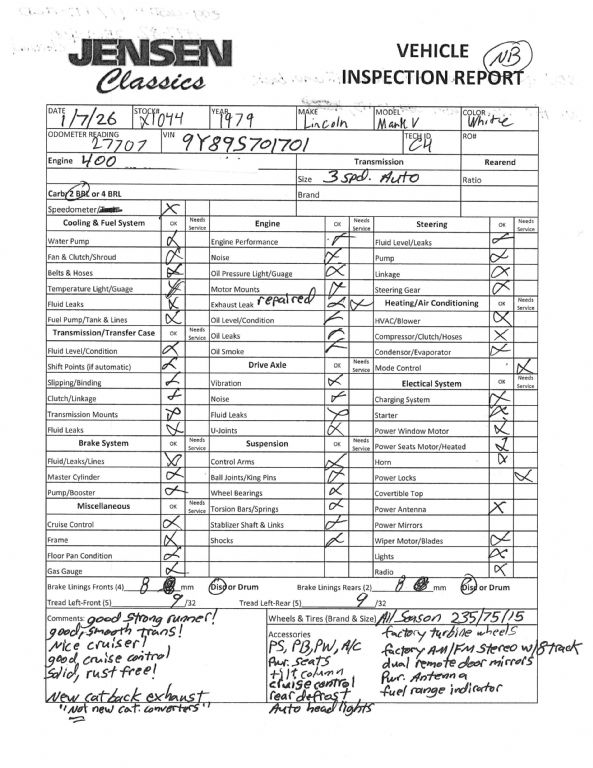 JENSEN
Classics
VEHICLE
INSPECTION REPORT
NB
DATE 1/7/26 STOCK# X1044 YEAR 1979 MAKE Lincoln MODEL Mark V COLOR White
ODOMETER READING 27707 VIN 9Y89S701701 TECH ID C4 RO#
Engine 400 Transmission Rearend
Size 3 spd. Auto Ratio
Carb: 2 BRL or 4 BRL Brand
Speedometer/
Cooling & Fuel System OK Needs Service Engine OK Needs Service Steering OK Needs Service
Water Pump Engine Performance Fluid Level/Leaks
Fan & Clutch/Shroud Noise Pump
Belts & Hoses Oil Pressure Light/Guage Linkage
Temperature Light/Guage Motor Mounts Steering Gear
Fluid Leaks Exhaust Leak repaired Heating/Air Conditioning OK Needs Service
Fuel Pump/Tank & Lines Oil Level/Condition HVAC/Blower
Transmission/Transfer Case OK Needs Service Oil Leaks Compressor/Clutch/Hoses
Fluid Level/Condition Oil Smoke Condensor/Evaporator
Shift Points (if automatic) Drive Axle OK Needs Service Mode Control
Slipping/Binding Vibration Electical System OK Needs Service
Clutch/Linkage Noise Charging System
Transmission Mounts Fluid Leaks Starter
Fluid Leaks U-Joints Power Window Motor
Brake System OK Needs Service Suspension OK Needs Service Power Seats Motor/Heated
Fluid/Leaks/Lines Control Arms Horn
Master Cylinder Ball Joints/King Pins Power Locks
Pump/Booster Wheel Bearings Covertible Top
Miscellaneous OK Needs Service Torsion Bars/Springs Power Antenna
Cruise Control Stablizer Shaft & Links Power Mirrors
Frame Shocks Wiper Motor/Blades
Floor Pan Condition Lights
Gas Gauge Radio
Brake Linings Fronts (4) 8 mm Disc or Drum Brake Linings Rears (2) 8 mm Disc or Drum
Tread Left-Front (5) 9/32 Tread Left-Rear (5) 9/32
Comments: good strong runner!
good, smooth trans!
Nice cruiser!
good, cruise control
Solid, rust free!
New catback exhaust
"Not new cat. converters"
Wheels & Tires (Brand & Size) All Season 235/75/15
Accessories
PS, PB, PW, A/C
Pwr. seats
tilt column
cruise control
rear defrost
Auto head lights
factory turbine wheels
factory AM/FM Stereo w/8 track
dual remote door mirrors
Pwr. Antenna
fuel range indicator